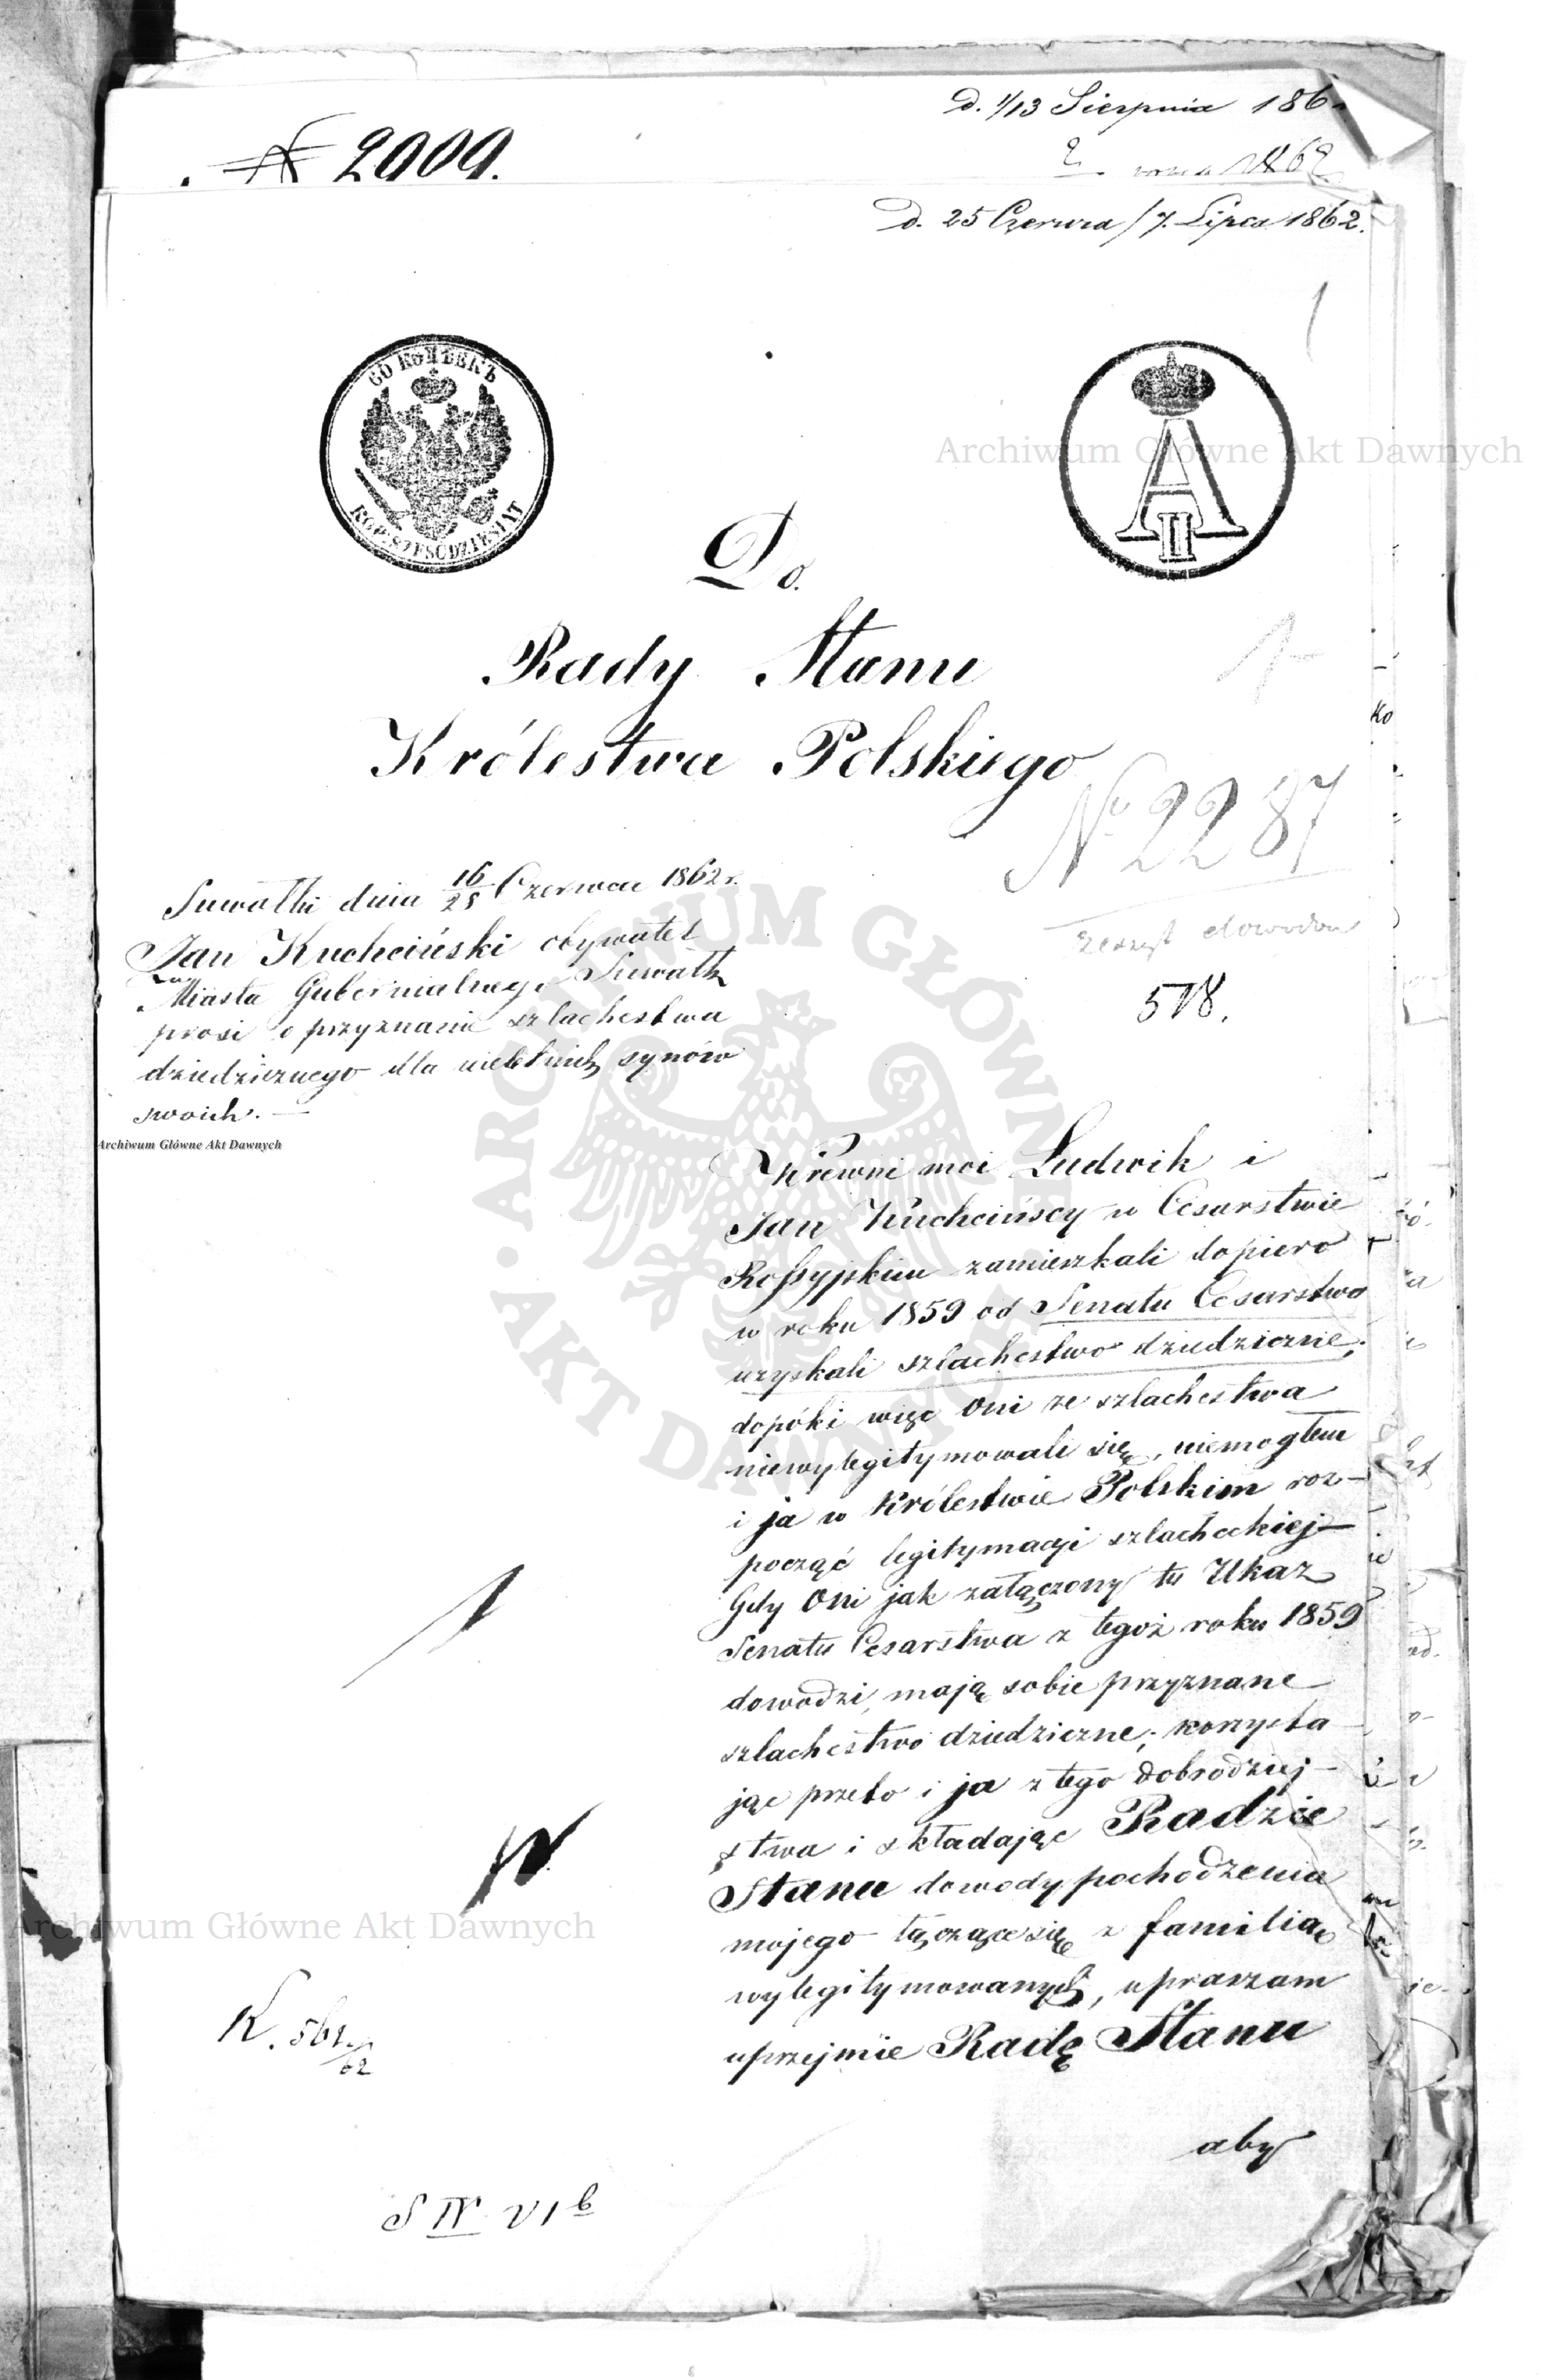 D. 1/13 Sierpnia 186
№ 2009.
D. 25 Czerwca / 7. Lipca 1862.
1
60 КОПѢЕКЪ
KOP. SZESĆDZIESIĄT
A II
Archiwum Główne Akt Dawnych
Do.
Rady Stanu
Królestwa Polskiego
1
№ 2287
Zeszyt dowodów
518.
Suwałki dnia 16/28 Czerwca 1862 r.
Jan Kuchciński obywatel
Miasta Gubernialnego Suwałk
prosi o przyznanie szlachectwa
dziedzicznego dla nieletnich synów
swoich. —
Archiwum Główne Akt Dawnych
ARCHIWUM GŁÓWNE AKT DAWNYCH
Krewni moi Ludwik i
Jan Kuchcińscy w Cesarstwie
Rossyjskim zamieszkali dopiero
w roku 1859 od Senatu Cesarstwa
uzyskali szlachectwo dziedziczne;
dopóki więc Oni ze szlachectwa
niewylegitymowali się, niemogłem
i ja w Królestwie Polskim roz-
począć legitymacji szlacheckiej —
Gdy Oni jak załączony tu Ukaz
Senatu Cesarstwa z tegoż roku 1859
dowodzi, mają sobie przyznane
szlachectwo dziedziczne; korzysta-
jąc przeto i ja z tego dobrodziej-
stwa i składając Radzie
Stanu dowody pochodzenia
mojego łączące się z familią
wylegitymowanych, upraszam
uprzejmie Radę Stanu
aby
Archiwum Główne Akt Dawnych
K. 561/62
S IV VI b